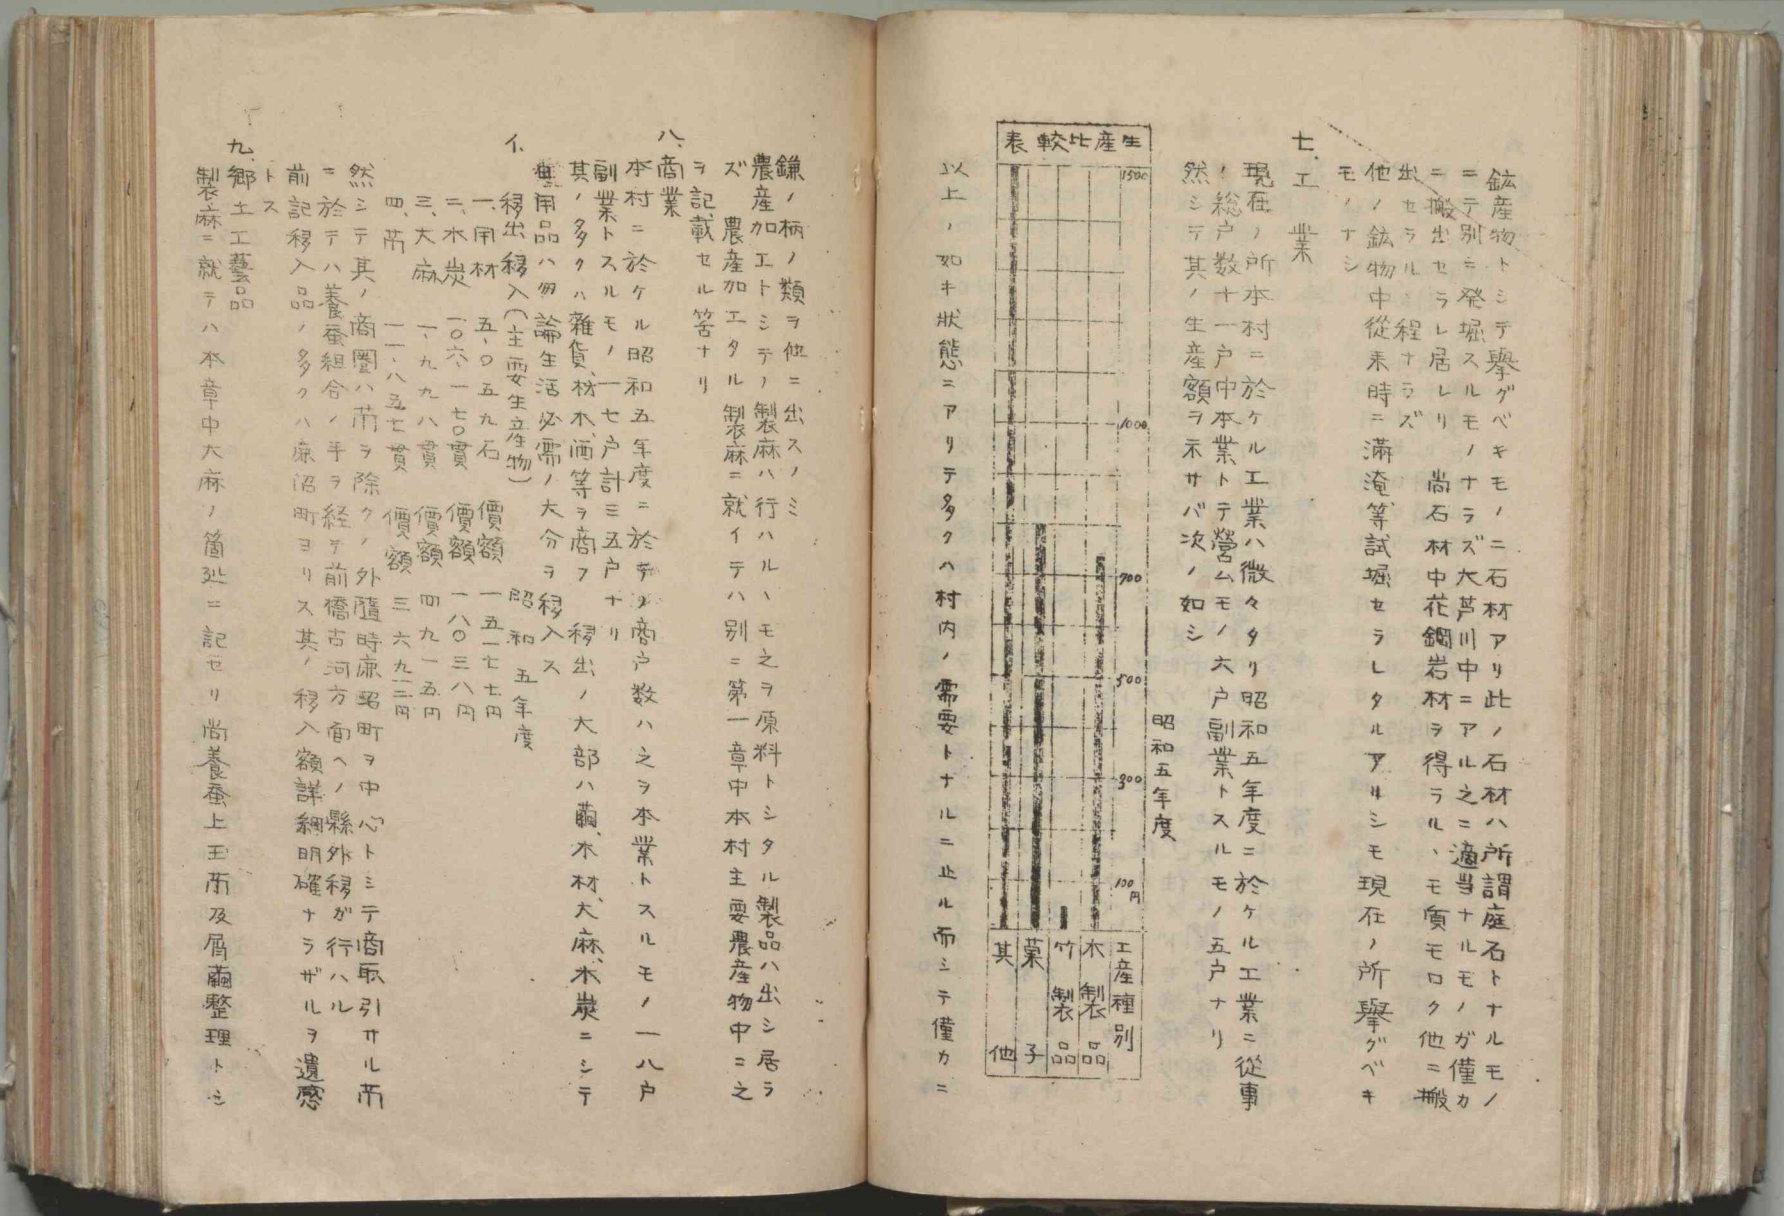 鉱産物トシテ擧グベキモノニ石材アリ此ノ石材ハ所謂庭石トナルモノ
ニテ別ニ発堀スルモノナラズ大芦川中ニアル之ニ適当ナルモノガ僅カ
ニ搬出セラレ居レリ 尚石材中花鋼岩材ヲ得ラルヽモ質モロク他ニ搬
出セラルヽ程ナラズ
他ノ鉱物中従来時ニ満淹等試堀セラレタルアルシモ現在ノ所擧グベキ
モノナシ
七、工業
現在ノ所本村ニ於ケル工業ハ微々タリ昭和五年度ニ於ケル工業ニ従事
ノ総戸数十一戸中本業トテ營ムモノ六戸副業トスルモノ五戸ナリ
然シテ其ノ生産額ヲ示サバ次ノ如シ
昭和五年度
生産比較表
1500
1000
700
500
300
100円
工産種別
木製品
竹製品
菓子
其他
以上ノ如キ狀態ニアリテ多クハ村内ノ需要トナルニ止ル而シテ僅カニ
鎌ノ柄ノ類ヲ他ニ出スノミ
農産加工トシテノ製麻ハ行ハルヽモ之ヲ原料トシタル製品ハ出シ居ラ
ズ 農産加工タル製麻ニ就イテハ別ニ第一章中本村主要農産物中ニ之
ヲ記載セル筈ナリ
八、商業
本村ニ於ケル昭和五年度ニ於テノ商戸数ハ之ヲ本業トスルモノ一八戸
副業トスルモノ一七戸計三五戸ナリ
其ノ多クハ雜貨、材木、酒等ヲ商フ 移出ノ大部ハ繭、木材、大麻、木炭ニシテ
用品ハ勿論生活必需ノ大分ヲ移入ス
イ、移出移入(主要生産物) 昭和五年度
一、用材 五、〇五九石 價額 一五一七七円
二、木炭 一〇六、一七〇貫 價額 一八〇三八円
三、大麻 一、九九八貫 價額 四九一五円
四、繭 一一、八五七貫 價額 三六九二円
然シテ其ノ商圏ハ繭ヲ除クノ外隨時鹿沼町ヲ中心トシテ商取引サル繭
ニ於テハ養蚕組合ノ手ヲ経テ前橋古河方面ヘノ縣外移ガ行ハル
前記移入品ノ多クハ鹿沼町ヨリス其ノ移入額詳細明確ナラザルヲ遺憾
トス
九、郷土工藝品
製麻ニ就テハ本章中大麻ノ箇処ニ記セリ尚養蚕上玉繭及屑繭整理トシ